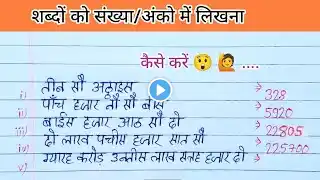 शब्दों को संख्या/अंको में लिखना
कैसे करें 😲 🙋 ....
i) तीन सौ अठ्ठाइस → 328
ii) पाँच हजार नौ सौ बीस → 5920
iii) बाईस हजार आठ सौ दो → 22805
iv) दो लाख पचीस हजार सात सौ → 225700
v) ग्यारह करोड़ उन्नीस लाख सत्रह हजार दो →